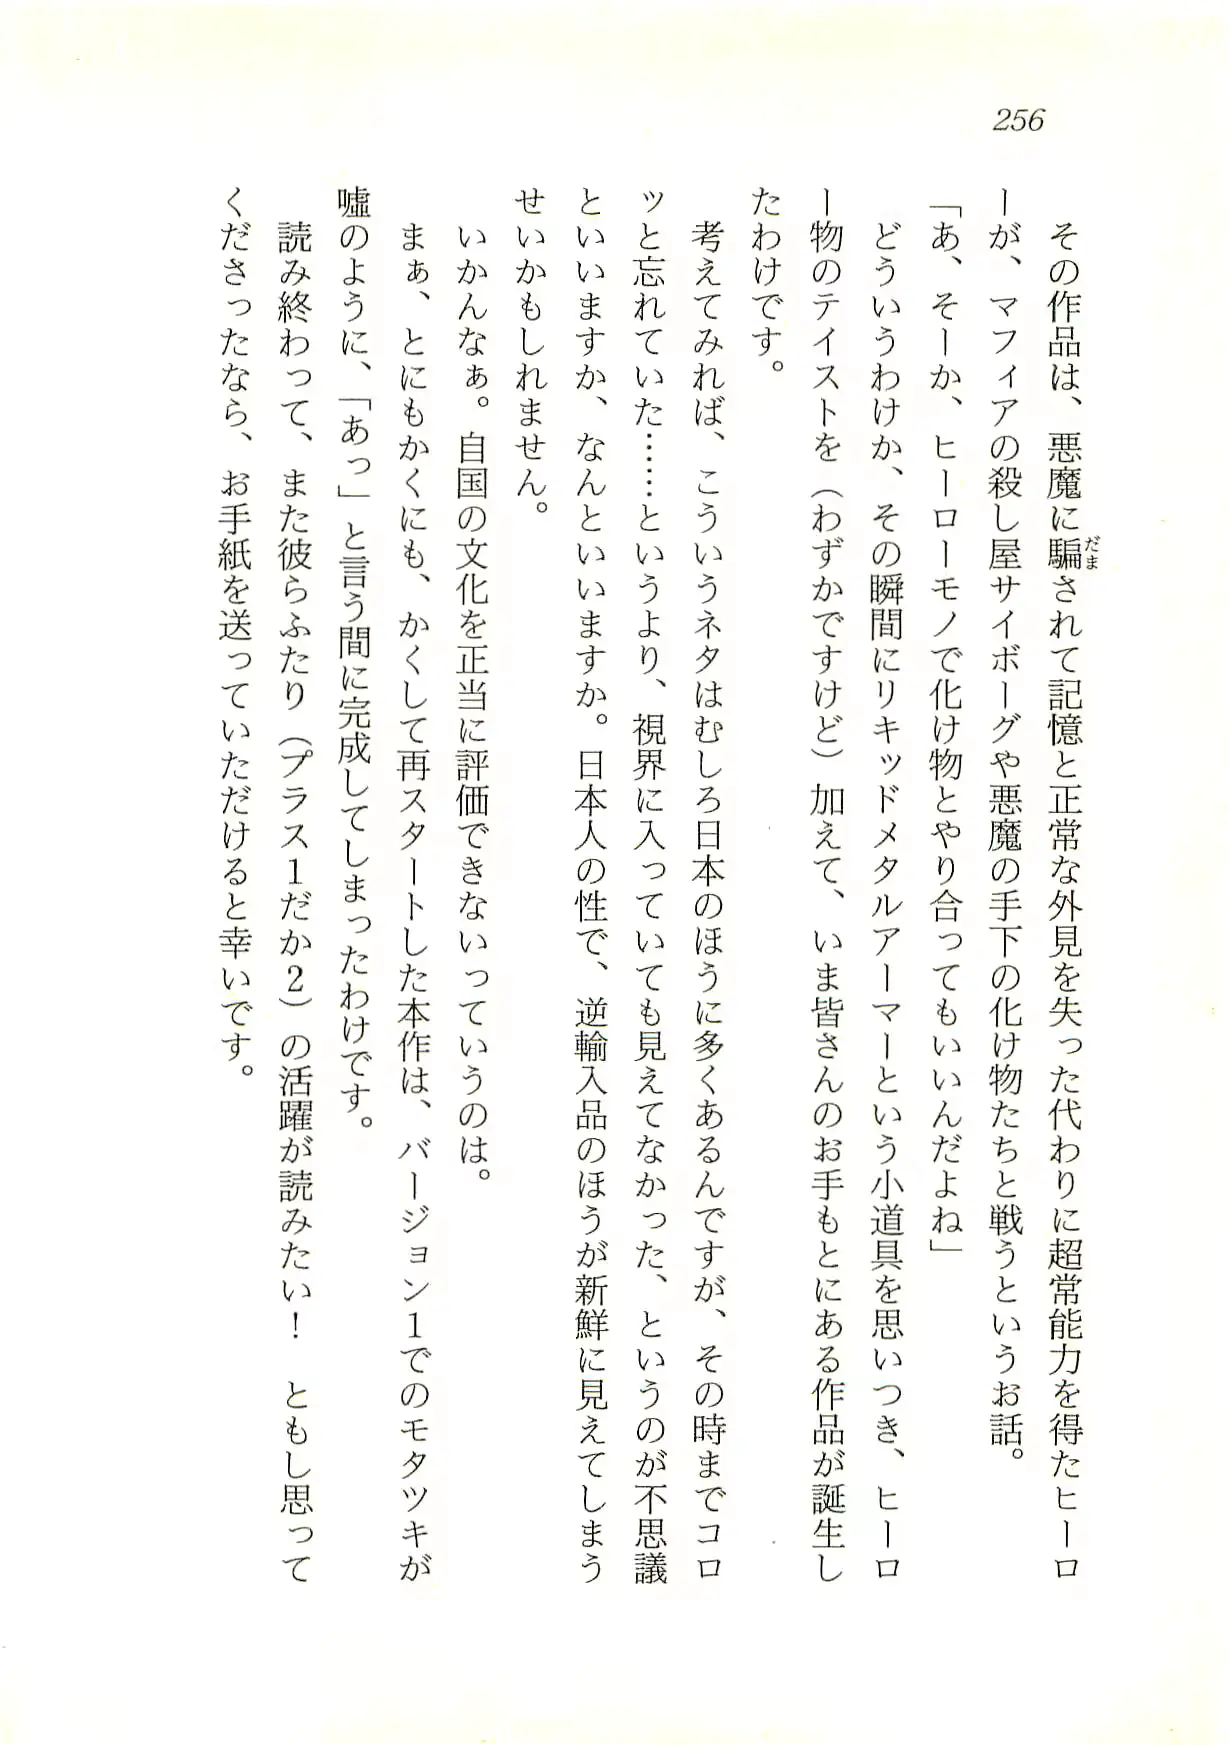 256
　その作品は、悪魔に騙されて記憶と正常な外見を失った代わりに超常能力を得たヒーロ
ーが、マフィアの殺し屋サイボーグや悪魔の手下の化け物たちと戦うというお話。
「あ、そーか、ヒーローモノで化け物とやり合ってもいいんだよね」
　どういうわけか、その瞬間にリキッドメタルアーマーという小道具を思いつき、ヒーロ
ー物のテイストを（わずかですけど）加えて、いま皆さんのお手もとにある作品が誕生し
たわけです。
　考えてみれば、こういうネタはむしろ日本のほうに多くあるんですが、その時までコロ
ッと忘れていた……というより、視界に入っていても見えてなかった、というのが不思議
といいますか、なんといいますか。日本人の性で、逆輸入品のほうが新鮮に見えてしまう
せいかもしれません。
　いかんなぁ。自国の文化を正当に評価できないっていうのは。
　まぁ、とにもかくにも、かくして再スタートした本作は、バージョン1でのモタツキが
嘘のように、「あっ」と言う間に完成してしまったわけです。
　読み終わって、また彼らふたり（プラス1だか2）の活躍が読みたい！　ともし思って
くださったなら、お手紙を送っていただけると幸いです。
だま